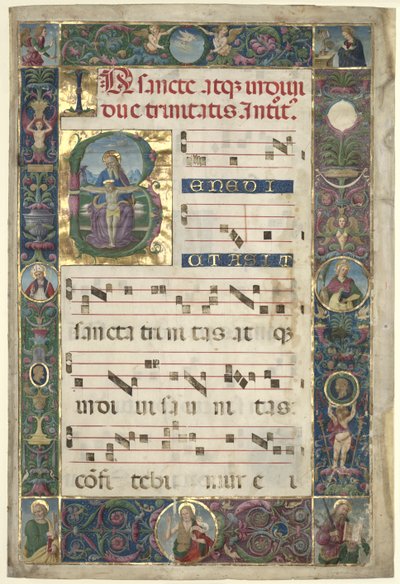 IN sancte atqꝫ indiui
due trinitatis Introit̄.
BENEDI
CTA SIT
sancta trini tas at qꝫ
indi ui sa uni tas
cōfi tebi mur e i